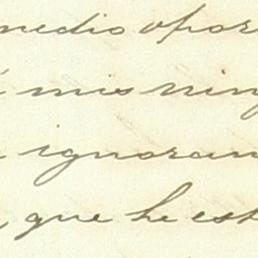 medio opor
mis nin
ignoran
que he est